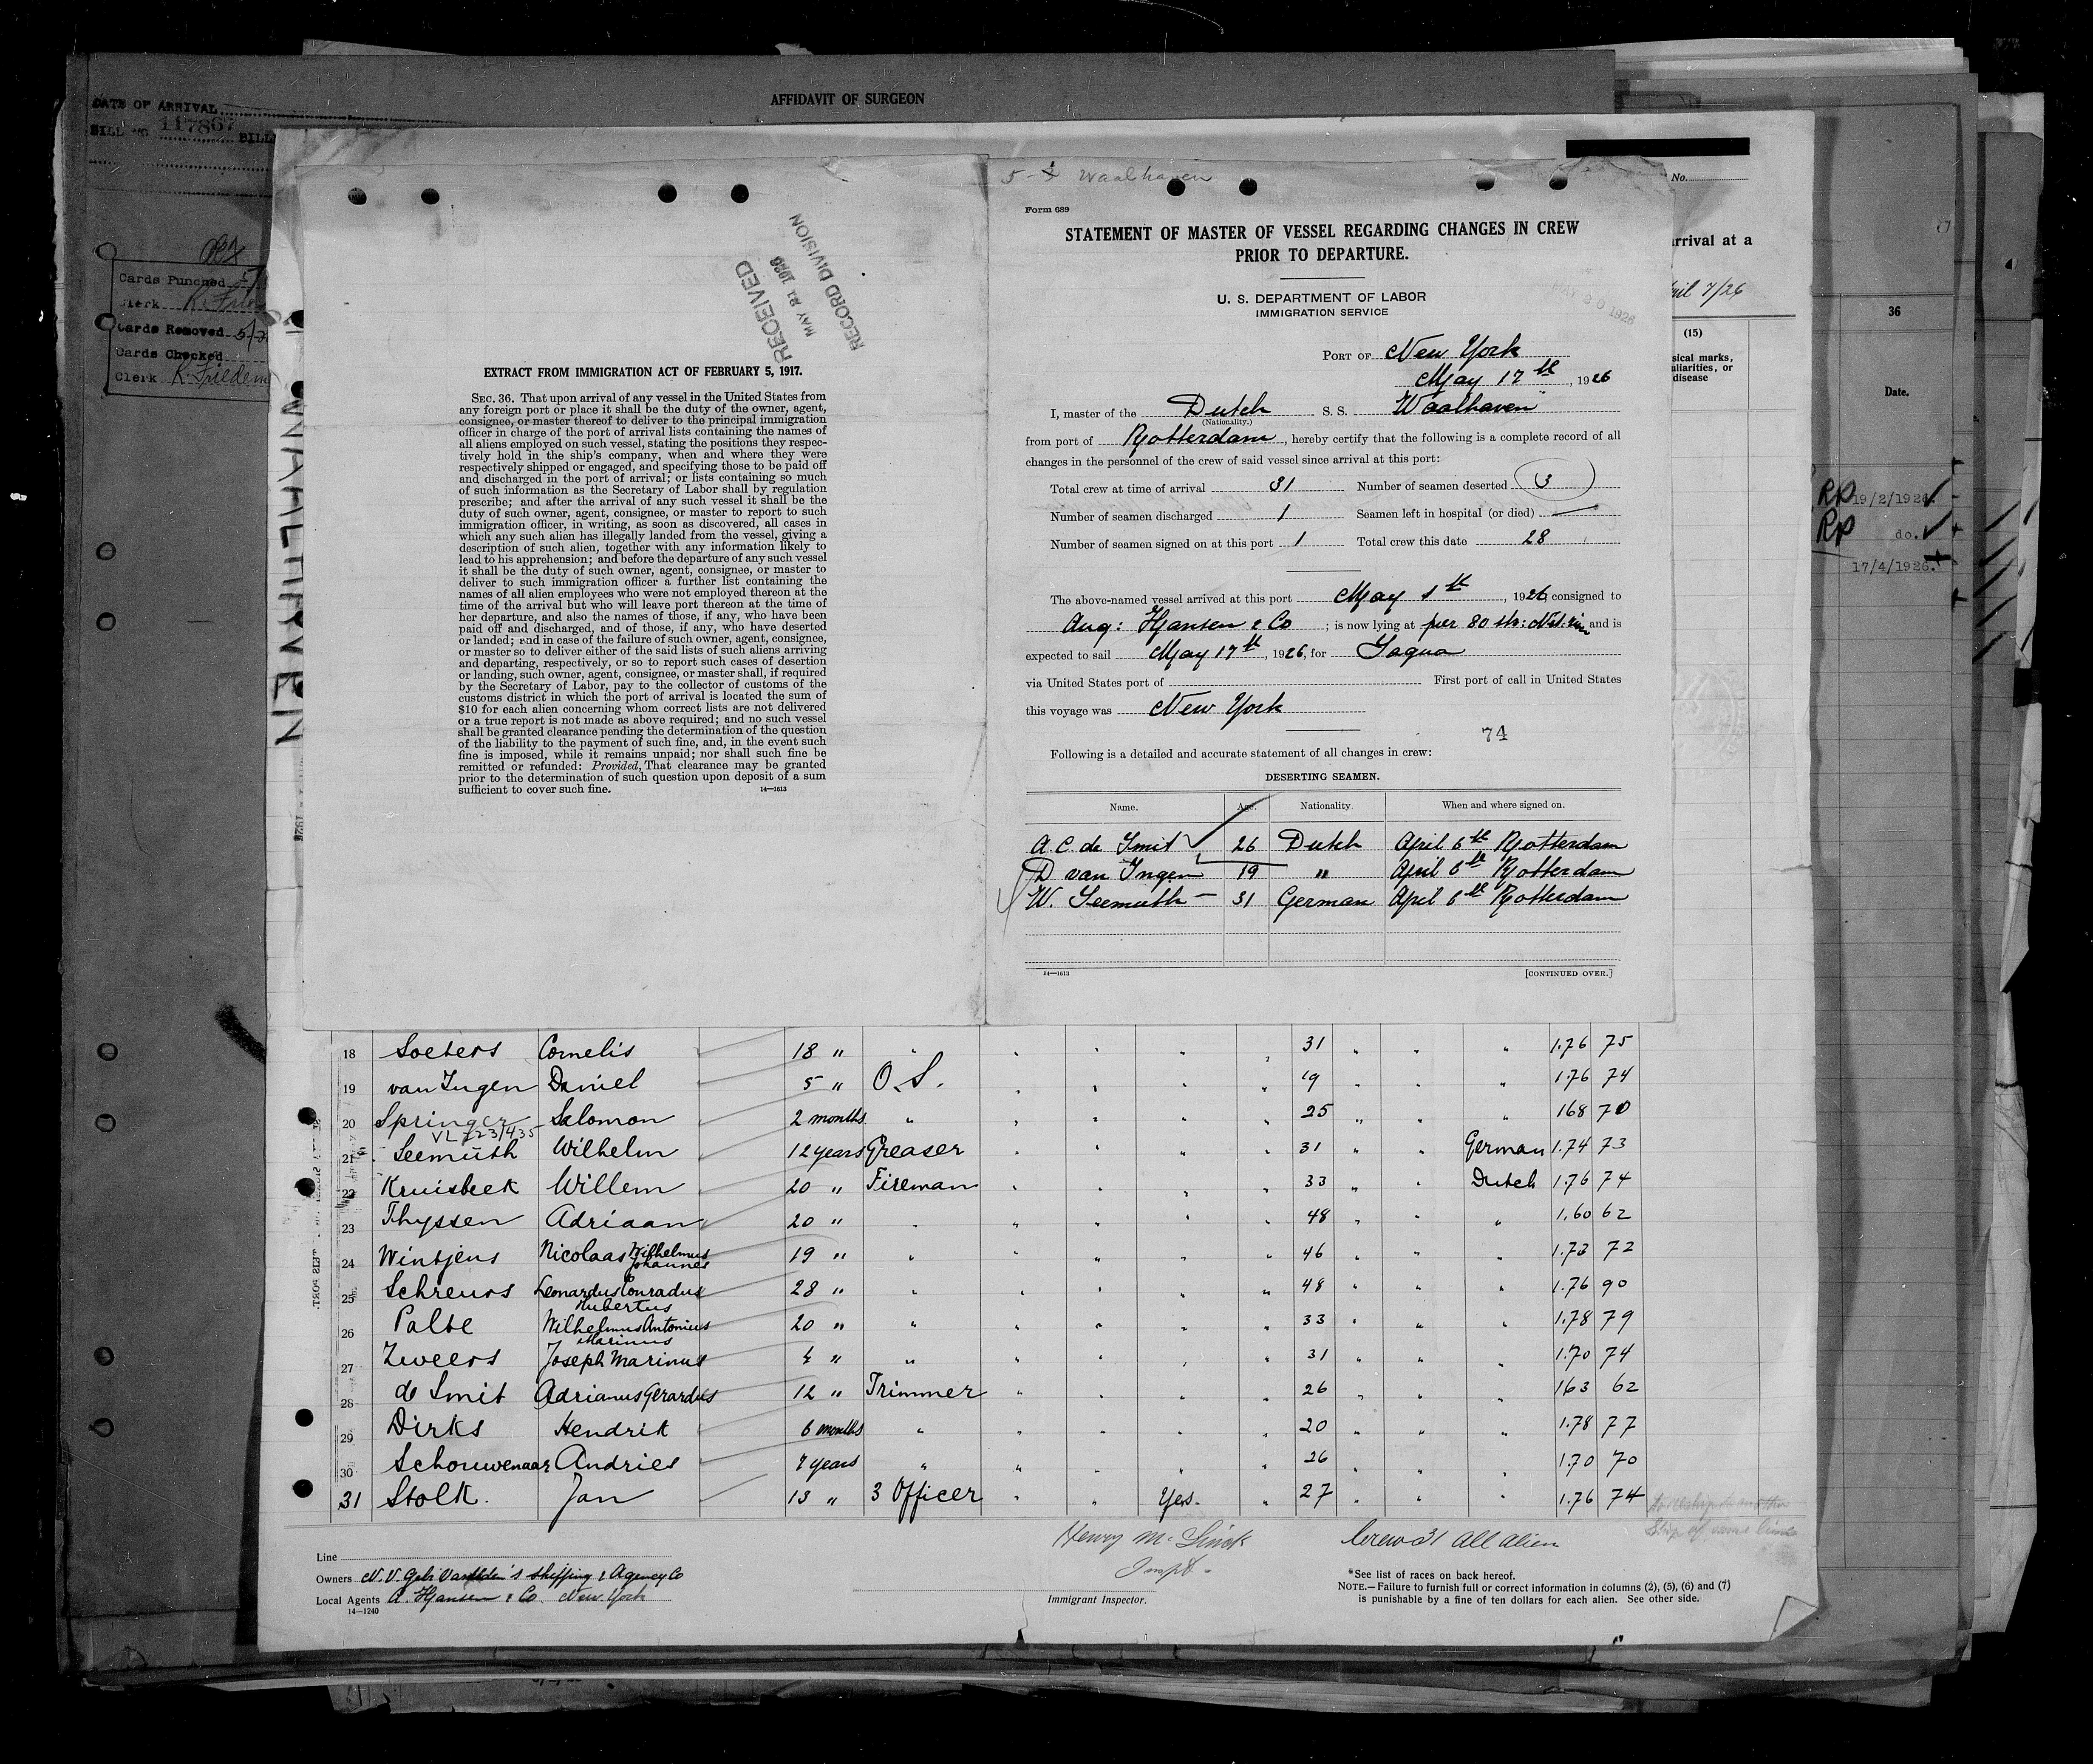 AFFIDAVIT OF SURGEON
DATE OF ARRIVAL
BILL NO 117867 BILL
Cards Punched 5/
Clerk
Cards Removed
Cards Checked
Clerk K. Friedem
WAALHAVEN
RECEIVED
MAY 21 1926
RECORD DIVISION
EXTRACT FROM IMMIGRATION ACT OF FEBRUARY 5, 1917.
SEC. 36. That upon arrival of any vessel in the United States from
any foreign port or place it shall be the duty of the owner, agent,
consignee, or master thereof to deliver to the principal immigration
officer in charge of the port of arrival lists containing the names of
all aliens employed on such vessel, stating the positions they respec-
tively hold in the ship's company, when and where they were
respectively shipped or engaged, and specifying those to be paid off
and discharged in the port of arrival; or lists containing so much
of such information as the Secretary of Labor shall by regulation
prescribe; and after the arrival of any such vessel it shall be the
duty of such owner, agent, consignee, or master to report to such
immigration officer, in writing, as soon as discovered, all cases in
which any such alien has illegally landed from the vessel, giving a
description of such alien, together with any information likely to
lead to his apprehension; and before the departure of any such vessel
it shall be the duty of such owner, agent, consignee, or master to
deliver to such immigration officer a further list containing the
names of all alien employees who were not employed thereon at the
time of the arrival but who will leave port thereon at the time of
her departure, and also the names of those, if any, who have been
paid off and discharged, and of those, if any, who have deserted
or landed; and in case of the failure of such owner, agent, consignee,
or master so to deliver either of the said lists of such aliens arriving
and departing, respectively, or so to report such cases of desertion
or landing, such owner, agent, consignee, or master shall, if required
by the Secretary of Labor, pay to the collector of customs of the
customs district in which the port of arrival is located the sum of
$10 for each alien concerning whom correct lists are not delivered
or a true report is not made as above required; and no such vessel
shall be granted clearance pending the determination of the question
of the liability to the payment of such fine, and, in the event such
fine is imposed, while it remains unpaid; nor shall such fine be
remitted or refunded: Provided, That clearance may be granted
prior to the determination of such question upon deposit of a sum
sufficient to cover such fine. 14—1613
Waalhaven
Form 689
STATEMENT OF MASTER OF VESSEL REGARDING CHANGES IN CREW
PRIOR TO DEPARTURE.
U. S. DEPARTMENT OF LABOR
IMMIGRATION SERVICE
MAY 20 1926
PORT OF New York
May 17th, 1926
I, master of the Dutch S. S. Waalhaven
(Nationality.)
from port of Rotterdam, hereby certify that the following is a complete record of all
changes in the personnel of the crew of said vessel since arrival at this port:
Total crew at time of arrival 31 Number of seamen deserted 3
Number of seamen discharged 1 Seamen left in hospital (or died) —
Number of seamen signed on at this port 1 Total crew this date 28
The above-named vessel arrived at this port May 1th, 1926, consigned to
Aug: Hansen & Co; is now lying at pier 80 and is
expected to sail May 17th, 1926, for Sagua
via United States port of First port of call in United States
this voyage was New York
74
Following is a detailed and accurate statement of all changes in crew:
DESERTING SEAMEN.
Name. Age. Nationality. When and where signed on.
A. C. de Smit 26 Dutch April 6th Rotterdam
D van Ingen 19 " April 6th Rotterdam
W. Seemuth — 31 German April 6th Rotterdam
14—1613 [CONTINUED OVER.]
No.
rrival at a
ril 7/26
(15)
sical marks,
uliarities, or
disease
36
Date.
RP 19/2/1926.
RP do.
17/4/1926.
18 Soeters Cornelis 18 " " 31 " " " 1.76 75
19 van Ingen Daniel 5 " O S. 19 " " " 1.76 74
20 Springer Salomon 2 months " 25 " " " 168 70
21 Seemüth Wilhelm 12 years Greaser 31 " " German 1.74 73
22 Kruisbeek Willem 20 " Fireman 33 " " Dutch 1.76 74
23 Thyssen Adriaan 20 " " 48 " " " 1.60 62
24 Wintjens Nicolaas Wilhelmus Johannes 19 " " 46 " " " 1.73 72
25 Schreurs Leonardus Conradus Hubertus 28 " " 48 " " " 1.76 90
26 Palte Wilhelmus Antonius Marinus 20 " " 33 " " " 1.78 79
27 Zweers Joseph Marinus 4 " " 31 " " " 1.70 74
28 de Smit Adrianus Gerardus 12 " Trimmer 26 " " " 163 62
29 Dirks Hendrik 6 months " 20 " " " 1.78 77
30 Schouwenaar Andries 7 years " 26 " " " 1.70 70
31 Stolk. Jan 13 " 3 Officer " " Yes. " 27 " " " 1.76 74
Line
Owners N. V. Gebr Van shipping & Agency Co
Local Agents A. Hansen & Co. New York
14—1240
Immigrant Inspector.
Crew 31 all alien
*See list of races on back hereof.
NOTE.—Failure to furnish full or correct information in columns (2), (5), (6) and (7)
is punishable by a fine of ten dollars for each alien. See other side.